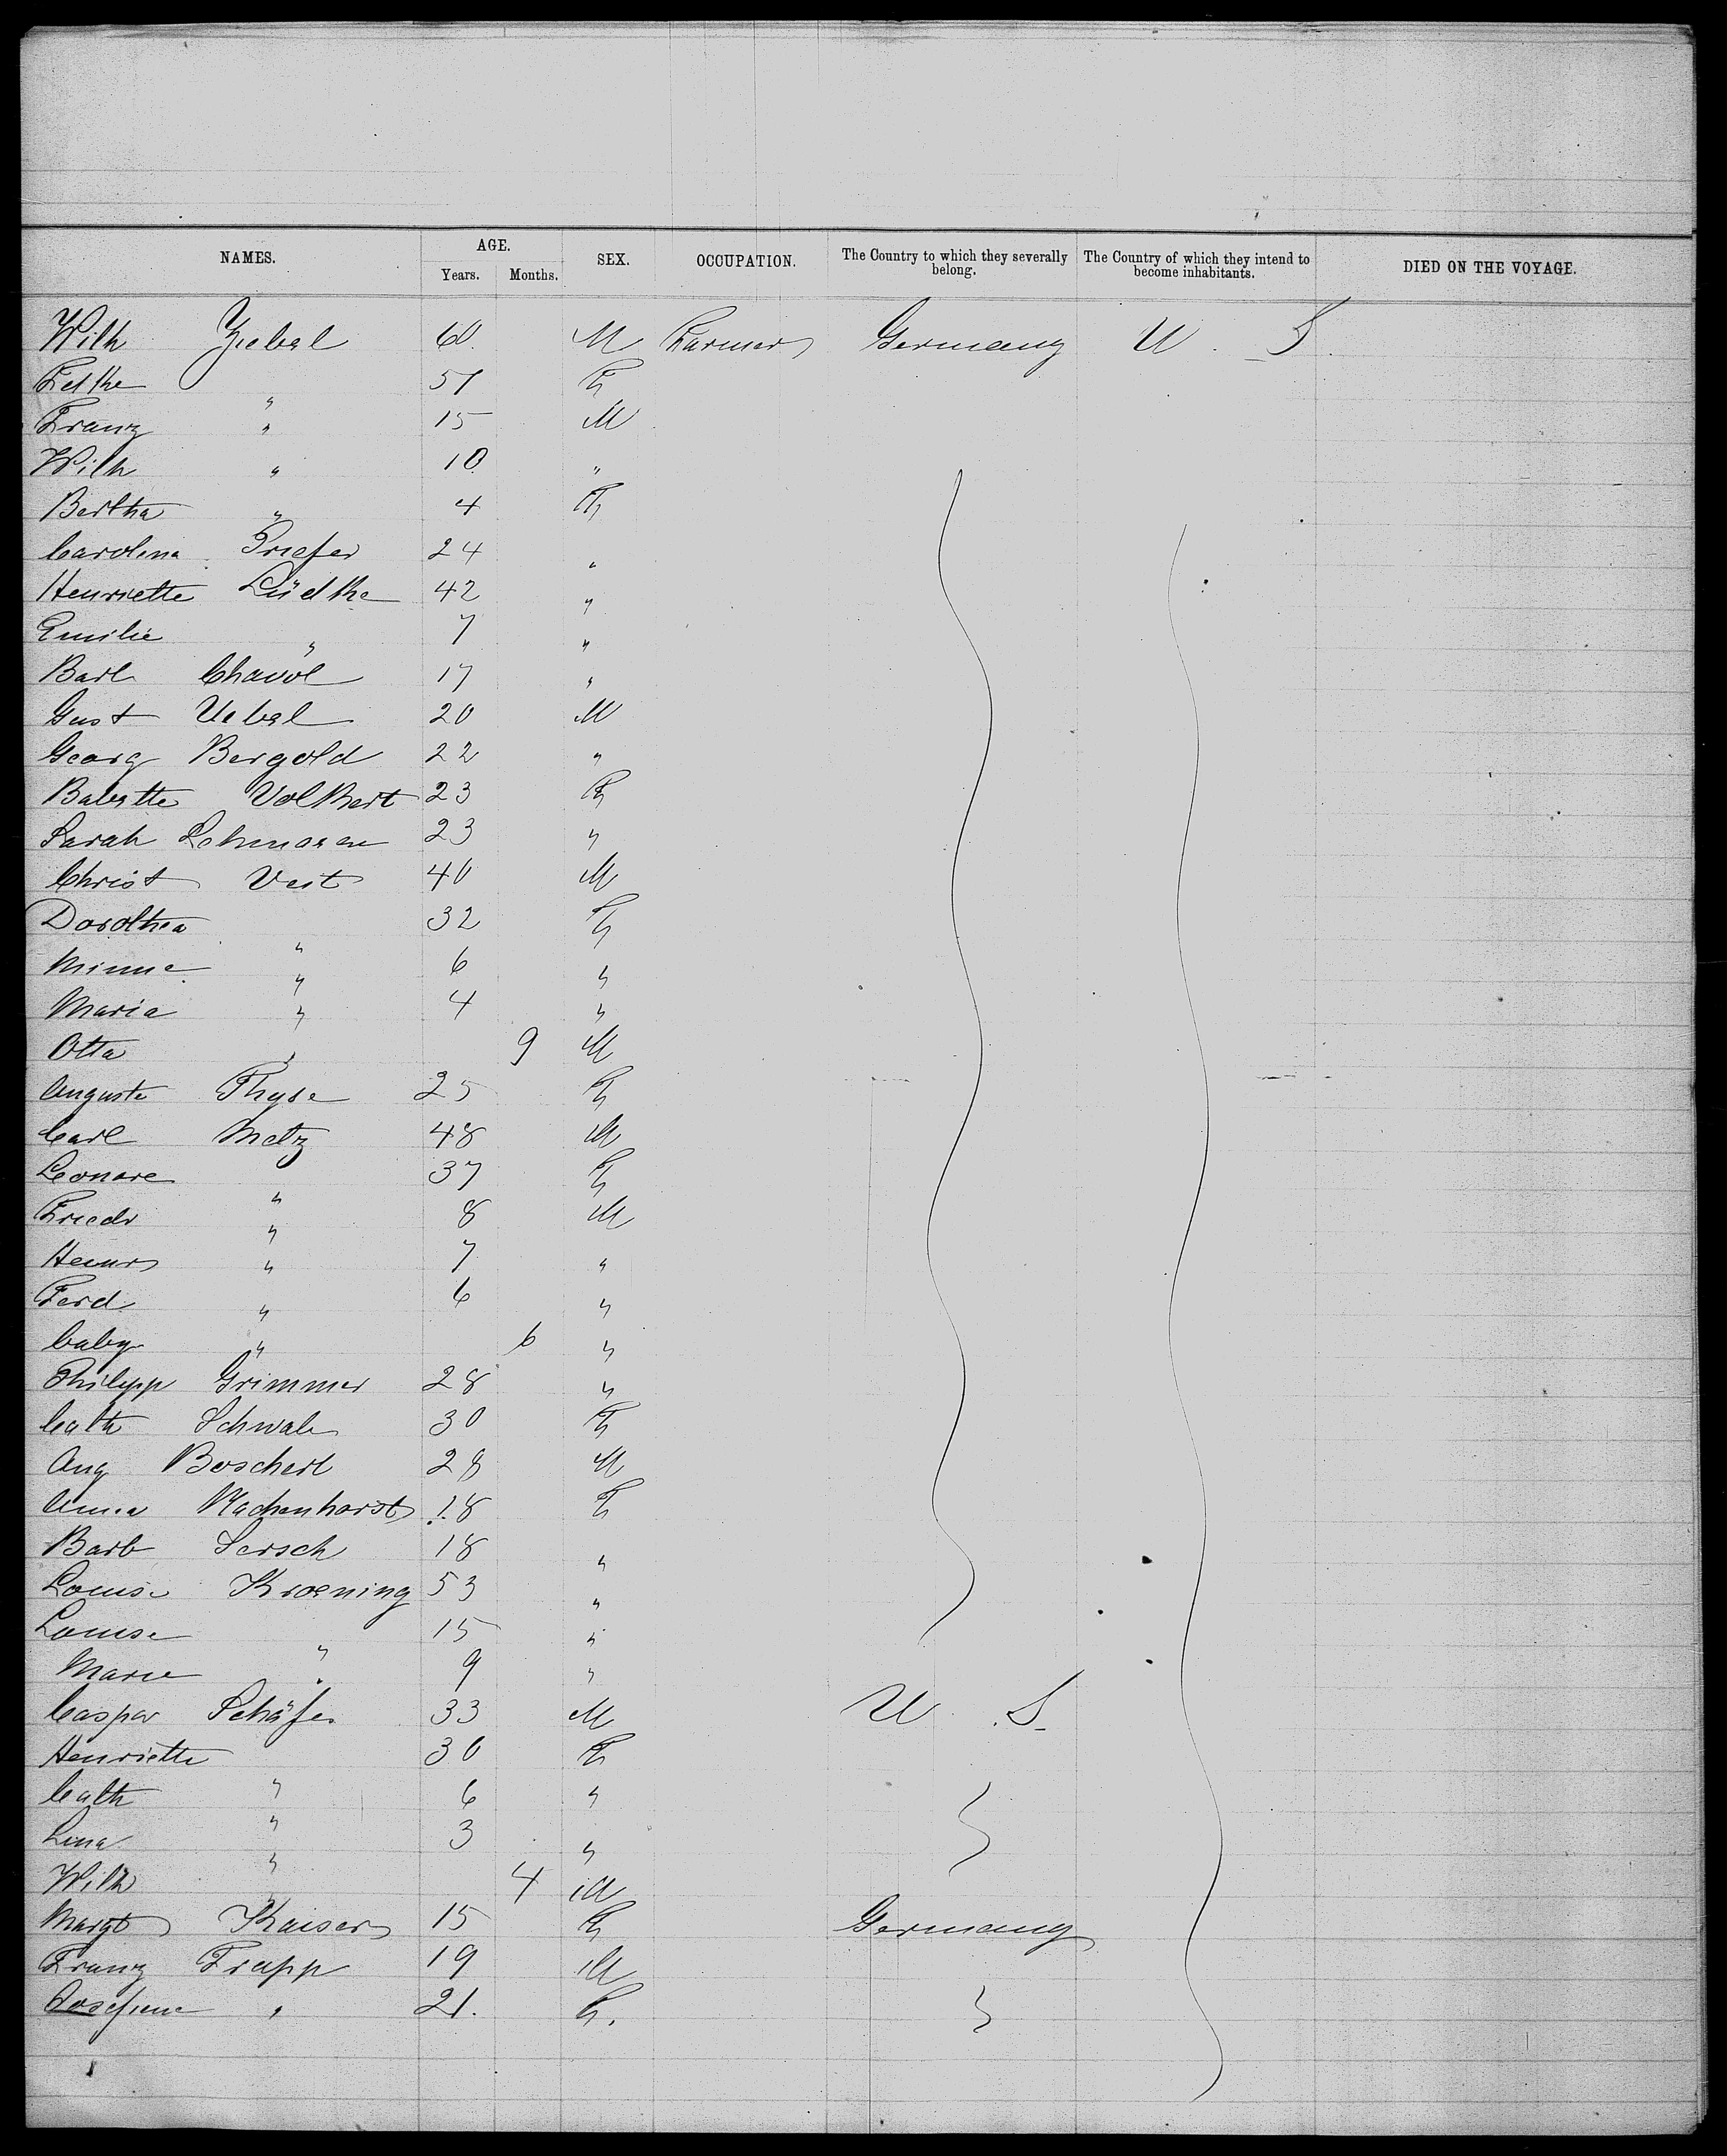 NAMES. AGE. SEX. OCCUPATION. The Country to which they severally belong. The Country of which they intend to become inhabitants. DIED ON THE VOYAGE.
Years. Months.
Wilh Ziebel 60 M Farmer Germany U. S.
51 F
Franz " 15 M
Wilh " 10 "
Bertha " 4 F
Carolina Priefer 24 "
Henriette Lüdtke 42 "
Emilie " 7 "
17 "
Gust Uebel 20 M
Georg Bergold 22 "
Babette Volkert 23 F
Sarah Lehmann 23 "
Christ Veit 40 M
Dorothea " 32 F
Minna " 6 "
Maria " 4 "
Otto " 9 M
Auguste Thyse 25 F
Carl Metz 48 M
Leonore " 37 F
Friedr " 8 M
Heinr " 7 "
Ferd " 6 "
baby " 6 "
Philipp Grimmer 28 "
Cath Schwab 30 F
Aug Boschert 28 M
Anna Wachenhorst 18 F
Barb Sersch 18 "
Louise Kroening 53 "
Louise " 15 "
Marie " 9 "
Caspar Schäfer 33 M U. S.
Henriette " 30 F
Cath " 6 "
Lina " 3 "
Wilh " 4 M
Margt Kaiser 15 F Germany
Franz Trapp 19 M
Josefine " 21. F.